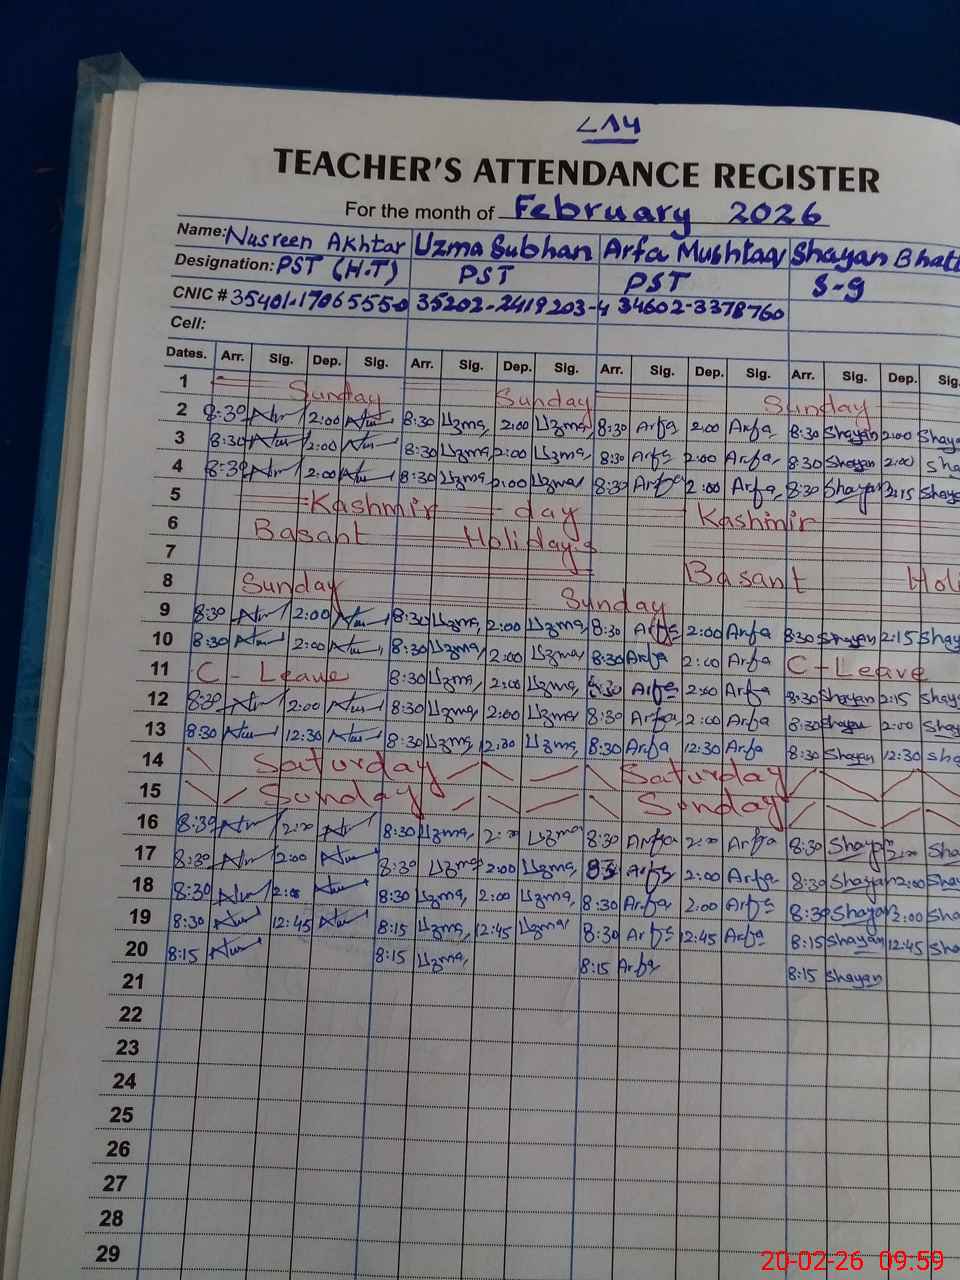 TEACHER'S ATTENDANCE REGISTER
For the month of February 2026
Name: Nasreen Akhtar Uzma Subhan Arfa Mushtaq Shayan Bhatt
Designation: PST (H.T) PST PST S-g
CNIC # 35401-1706555-0 35202-2419203-4 34602-3378760
Cell:
Dates. Arr. Sig. Dep. Sig. Arr. Sig. Dep. Sig. Arr. Sig. Dep. Sig. Arr. Sig. Dep. Sig.
1 Sunday Sunday Sunday
2 8:30 2:00 8:30 Uzma 2:00 Uzma 8:30 Arfa 2:00 Arfa 8:30 Shayan 2:00 Shaya
3 8:30 2:00 8:30 Uzma 2:00 Uzma 8:30 Arfa 2:00 Arfa 8:30 Shayan 2:00 Sha
4 8:30 2:00 8:30 Uzma 2:00 Uzma 8:30 Arfa 2:00 Arfa 8:30 Shayan 2:15 Shaya
5 Kashmir day Kashmir
6 Basant Holidays
7 Basant Holi
8 Sunday Sunday
9 8:30 2:00 8:30 Uzma 2:00 Uzma 8:30 Arfa 2:00 Arfa 8:30 Shayan 2:15 Shay
10 8:30 2:00 8:30 Uzma 2:00 Uzma 8:30 Arfa 2:00 Arfa C-Leave
11 C-Leave 8:30 Uzma 2:00 Uzma 8:30 Arfa 2:00 Arfa 8:30 Shayan 2:15 Shaya
12 8:30 2:00 8:30 Uzma 2:00 Uzma 8:30 Arfa 2:00 Arfa 8:30 Shayan 2:00 Shay
13 8:30 12:30 8:30 Uzma 12:30 Uzma 8:30 Arfa 12:30 Arfa 8:30 Shayan 12:30 Sha
14 Saturday Saturday
15 Sunday Sonday
16 8:30 2:00 8:30 Uzma 2:00 Uzma 8:30 Arfa 2:00 Arfa 8:30 Shayan 2:00 Sha
17 8:30 2:00 8:30 Uzma 2:00 Uzma Arfa 2:00 Arfa 8:30 Shayan 2:00 Shay
18 8:30 2:00 8:30 Uzma 2:00 Uzma 8:30 Arfa 2:00 Arfa 8:30 Shayan 2:00 Sha
19 8:30 12:45 8:15 Uzma 12:45 Uzma 8:30 Arfa 12:45 Arfa 8:15 Shayan 12:45 Sha
20 8:15 8:15 Uzma 8:15 Arfa 8:15 Shayan
21
22
23
24
25
26
27
28
29
20-02-26 09:59